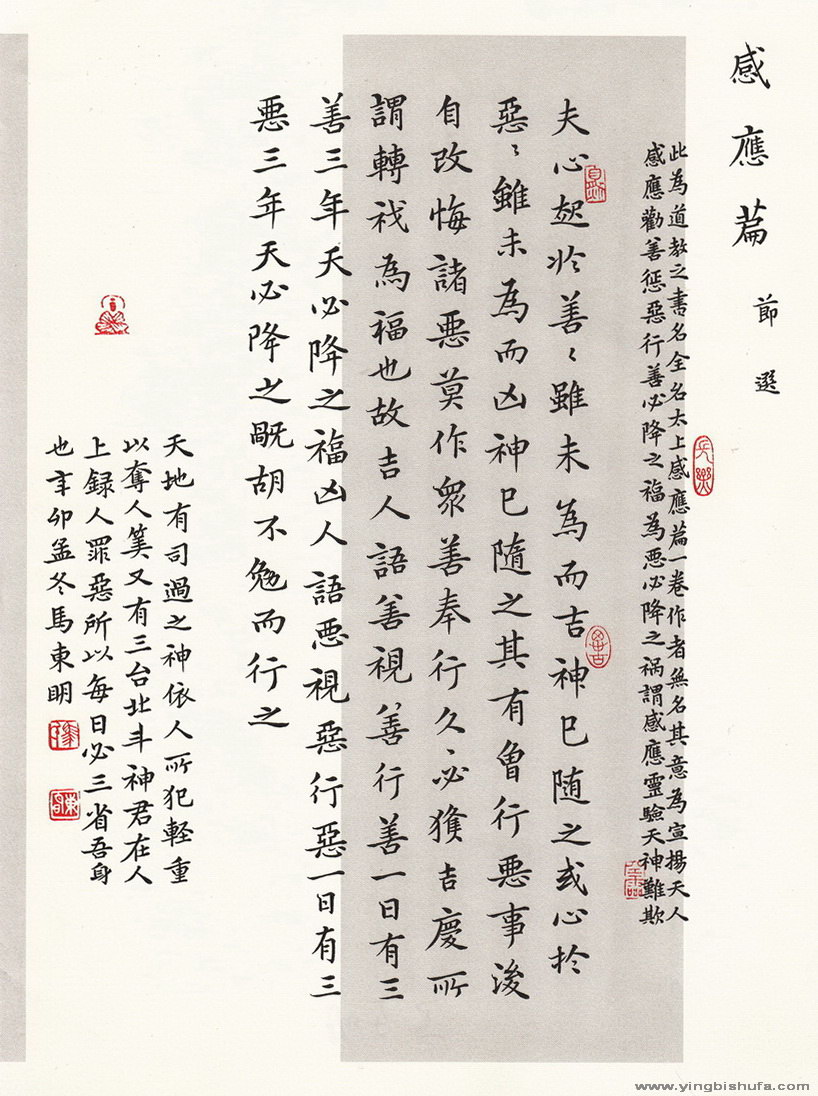 感應篇 節選
此為道教之書名全名太上感應篇一卷作者無名其意為宣揚天人
感應勸善惩惡行善必降之福為惡必降之祸謂感應靈驗天神難欺
夫心起於善〻雖未為而吉神已随之或心於
惡〻雖未為而凶神已隨之其有曾行惡事後
自改悔諸惡莫作眾善奉行久〻必獲吉慶所
謂轉祸為福也故吉人語善視善行善一日有三
善三年天必降之福凶人語惡視惡行惡一日有三
惡三年天必降之旤胡不勉而行之
天地有司過之神依人所犯輕重
以奪人筭又有三台北斗神君在人
上録人罪惡所以每日必三省吾身
也辛卯孟冬馬東明
www.yingbishufa.com